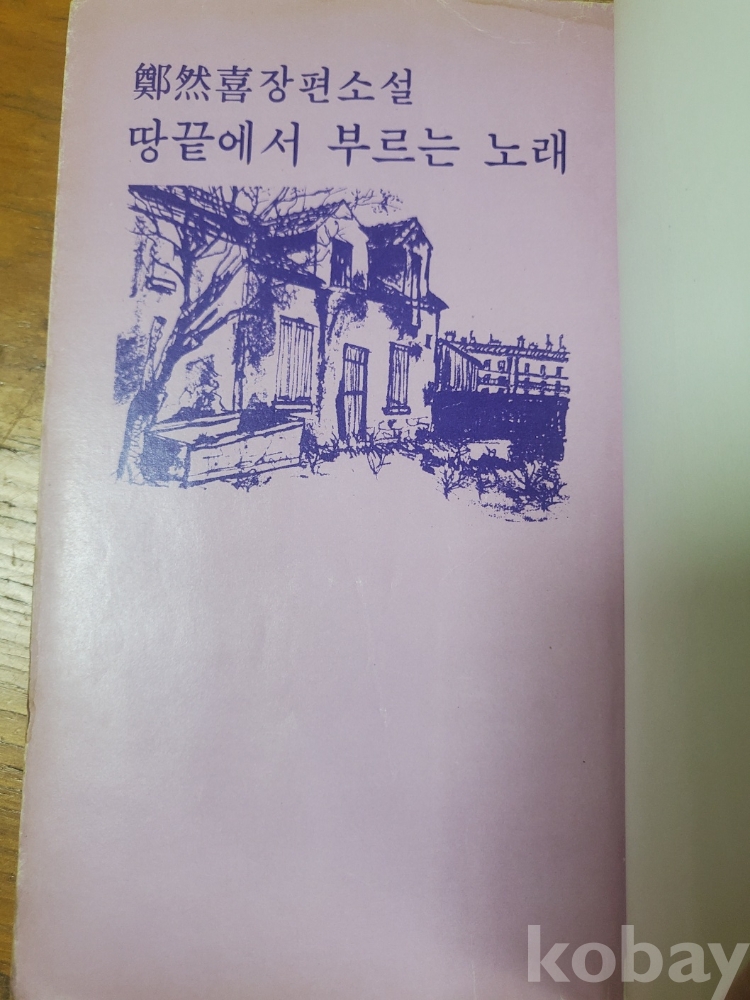 鄭然喜장편소설
땅끝에서 부르는 노래
kobay